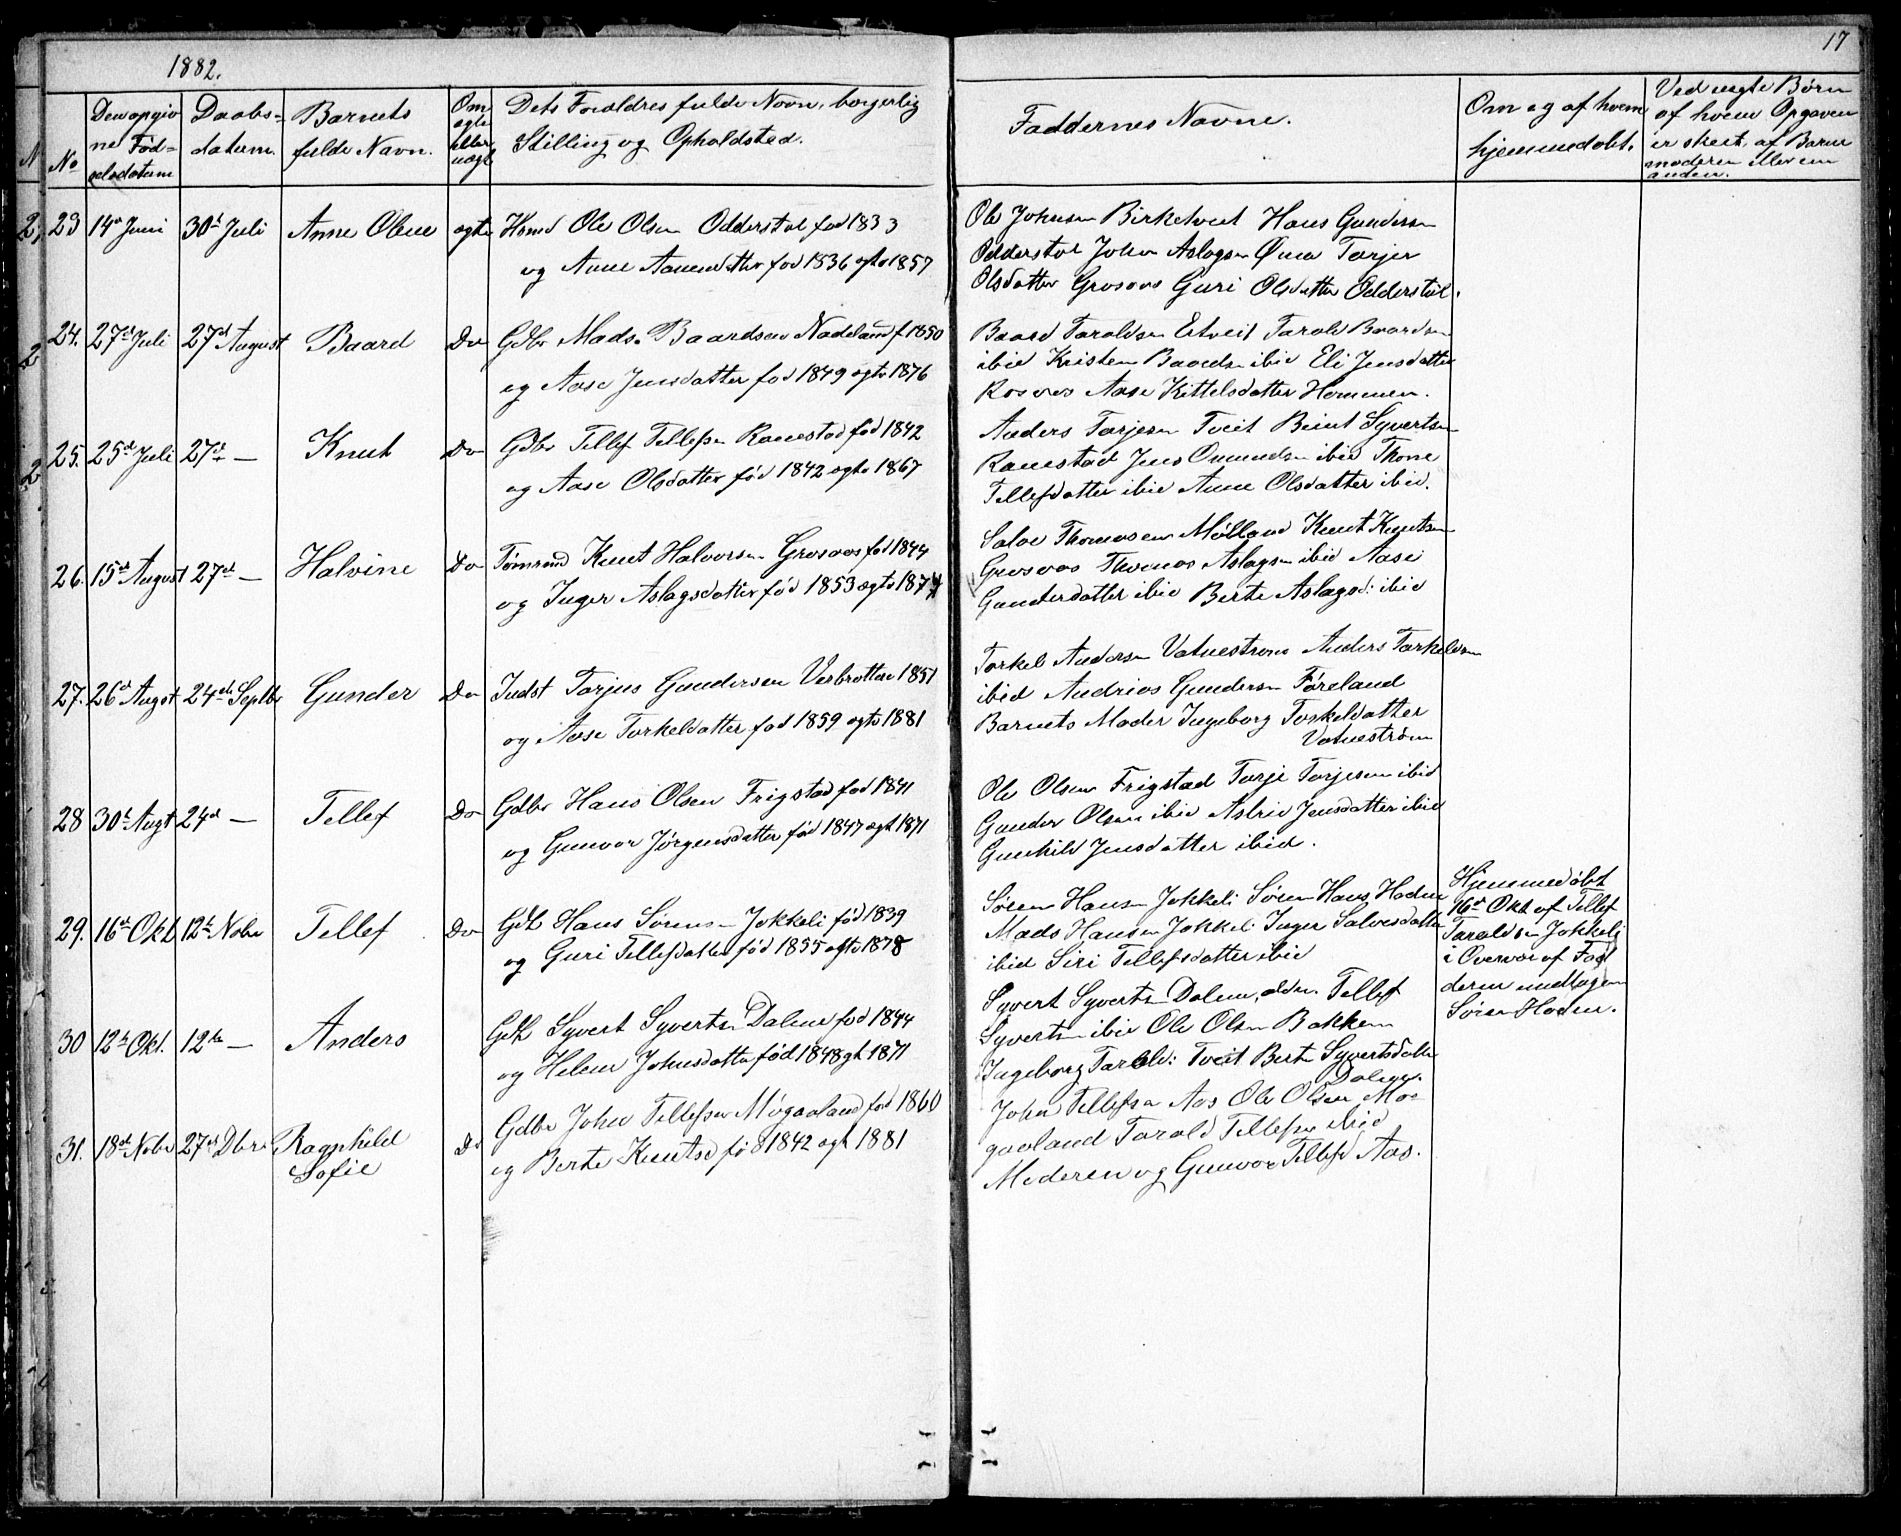 1882.
17
No
Den opgivne Fødselsdatum
Daabsdatum.
Barnets fulde Navn.
Om ægte eller uægt
Dets Forældres fulde Navn, borgerlig Stilling og Opholdsted.
Faddernes Navne.
Om og af hvem hjemmedøbt.
Ved uægte Børn af hvem Opgaven er skeet, af Barnemoderen eller en anden.
23 14de Juni 30te Juli Anne Olene ægte Husmd Ole Olsen Odderstøl fød 1833
og Anne Aanensdatter fød 1836 ægtev 1857
Ole Johnsen Birketveit Hans Gundersen
Odderstøl John Aslagsen Torjer
Olsdatter Grosaas Guri Olsdatter Odderstøl.
24. 27de Juli 27de August Baard Do Gdbr Mads Baardsen Nadeland f 1850
og Aase Jensdatter fød 1849 ægtv 1876
Baard Taraldsen Estveit Tarald Baardsen
ibid Kristen Baardsen ibid Eli Jensdatter
Rosaas Aase Kittelsdatter Hommen.
25. 25de Juli 27de — Knut Do Gdbr Tellef Tellefsen Ranestad fød 1842
og Aase Olsdatter fød 1842 ægtv 1867
Anders Torjesen Tveit Beint Syvertsen
Ranestad Jens Omundsen ibid Thone
Tellefsdatter ibid Anne Olsdatter ibid.
26. 15de August 27de — Halvine Do Tømrmd Knut Halvorsen Grosaas fød 1844
og Inger Aslagsdatter fød 1853 ægtv 1877
Salve Thomasen Mølland Knut Knutsen
Grosaas Thomas Aslagsen ibid Aase
Gundersdatter ibid Berte Aslagsd: ibid
27. 26de Augst 24de Septbr Gunder Do Indst Torjus Gundersen Vesbrottene 1851
og Aase Torkelsdatter fød 1859 ægtv 1881
Torkel Andersen Vatnestrøm Anders Torkelsen
ibid Andreas Gundersen Føreland
Barnets Moder Ingeborg Torkelsdatter
Vatnestrøm
28 30te Augt 24de — Tellef Do Gdbr Hans Olsen Frigstad fød 1841
og Gunvor Jørgensdatter fød 1847 ægt 1871
Ole Olsen Frigstad Torje Torjesen ibid
Gunder Olsen ibid Astrid Jensdatter ibid
Gunhild Jensdatter ibid.
29. 16de Okt 12te Nobr Tellef Do Gdb Hans Sørensen Jokkeli fød 1839
og Guri Tellefsdatter fød 1855 ægtv 1878
Søren Hansen Jokkeli Søren Hans. Hodne
Mads Hansen Jokkeli Inger Salvesdatter
ibid Siri Tellefsdatter ibid
Hjemmedøbt
16de Okt af Tellef
Taraldsen Jokkeli
i Overvær af Fad
derne undtagen
Søren Hodne.
30 12te Okt. 12te — Anders Gdb Syvert Syvertsen Dalene fød 1844
og Helene Johnsdatter fød 1848 gt 1871
Syvert Syvertsen Dalene, ældr. Tellef
Syvertsen ibid Ole Olsen Bakken
Ingeborg Tarald: Tveit Berte Syvertsdatter
Dalene.
31. 18de Nobr 27de Dbr Ragnhild Sofie Do Gdbr John Tellefsen Møgaaland fød 1860
og Berte Knutsd fød 1842 ægt 1881
John Tellefsen Aas Ole Olsen Mø
gaaland Tarald Tellefsen ibid
Moderen og Gunvor Tellefsd Aas.